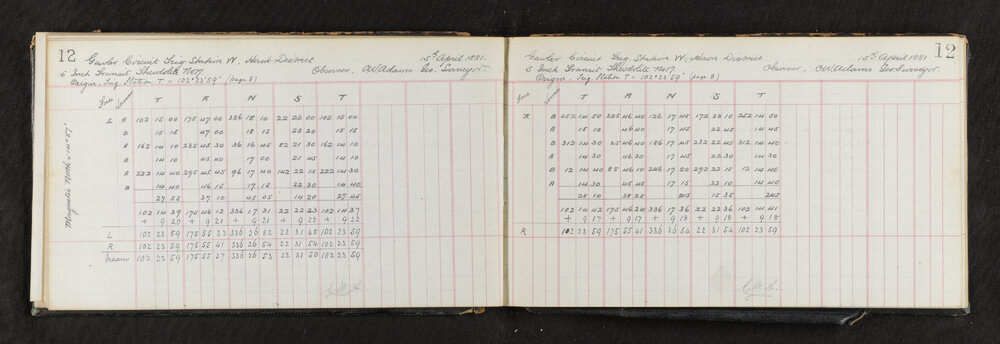 12
Gawler Circuit Trig Station W, Heron District 15th April 1881.
6 Inch Transit Theodolite No 17 Observer. CWAdams Geo. Surveyor.
Origin. Trig Station T = 102° 23' 59" (page 8)
Face
T A N S T
L A 102 15 00 175 47 00 336 18 10 22 23 00 102 15 00
B 15 15 47 00 18 15 23 20 15 15
A 162 14 10 235 45 30 36 16 45 82 21 30 162 14 10
B 14 10 45 40 17 00 21 45 14 10
A 222 14 40 295 45 45 96 17 40 142 22 15 222 14 30
B 14 40 46 15 17 15 22 30 14 40
27 55 37 10 45 05 14 20 27 45
102 14 39 175 46 12 336 17 31 22 22 23 102 14 37
+ 9 20 + 9 21 + 9 21 + 9 22 + 9 22
L 102 23 59 175 55 33 336 26 52 22 31 45 102 23 59
R 102 23 59 175 55 41 336 26 54 22 31 54 102 23 59
Means 102 23 59 175 55 37 336 26 53 22 31 50 102 23 59
Magnetic North = 14° 57'
12
Gawler Circuit Trig Station W, Heron District 15th April 1881
6 Inch Transit Theodolite No 17 Observer CWAdams Geo Surveyor.
Origin, Trig Station T = 102° 23' 59" (page 8)
Face
T A N S T
R B 252 14 50 325 46 40 126 17 45 172 23 10 252 14 50
A 15 10 46 40 17 45 22 45 14 45
B 312 14 30 25 46 40 186 17 45 232 22 45 312 14 40
A 14 30 46 30 17 45 22 30 14 30
B 12 14 40 85 46 10 246 17 20 292 22 15 12 14 40
A 14 30 45 45 17 15 22 10 14 40
25 10 38 25 215 15 35 245
102 14 42 175 46 24 336 17 36 22 22 36 102 14 41
+ 9 17 + 9 17 + 9 18 + 9 18 + 9 18
R 102 23 59 175 55 41 336 26 54 22 31 54 102 23 59